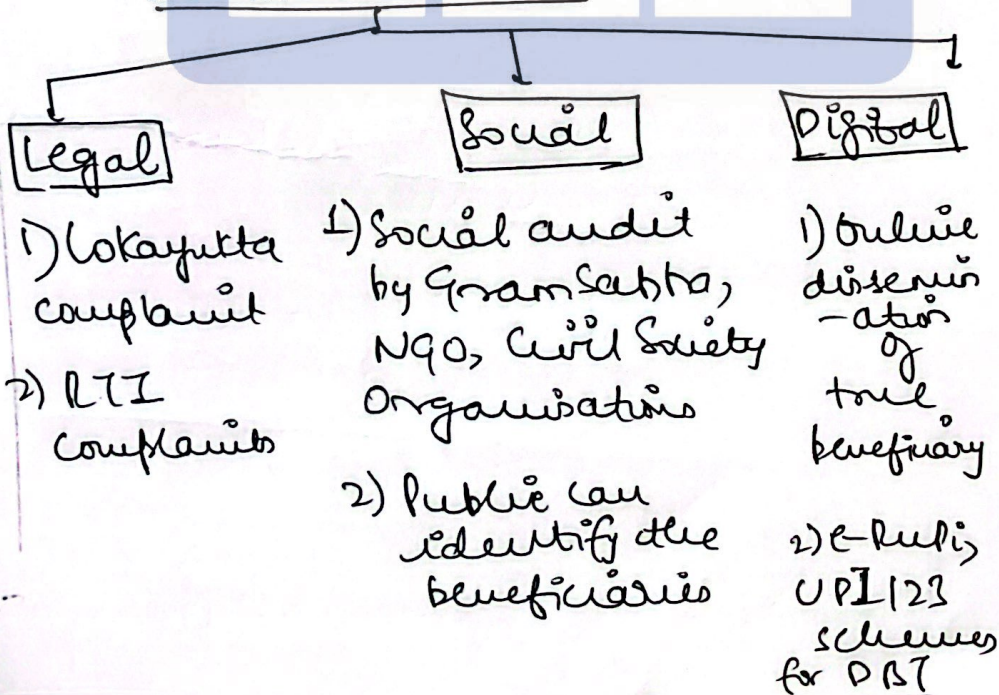 Legal
1) Lokayukta
complaint
2) RTI
complaints
Social
1) Social audit
by Gram Sabha,
NGO, Civil Society
Organisations
2) Public can
identify the
beneficiaries
Digital
1) Online
dissemin
-ation
of
true
beneficiary
2) e-RuPi,
UPI 123
schemes
for DBT